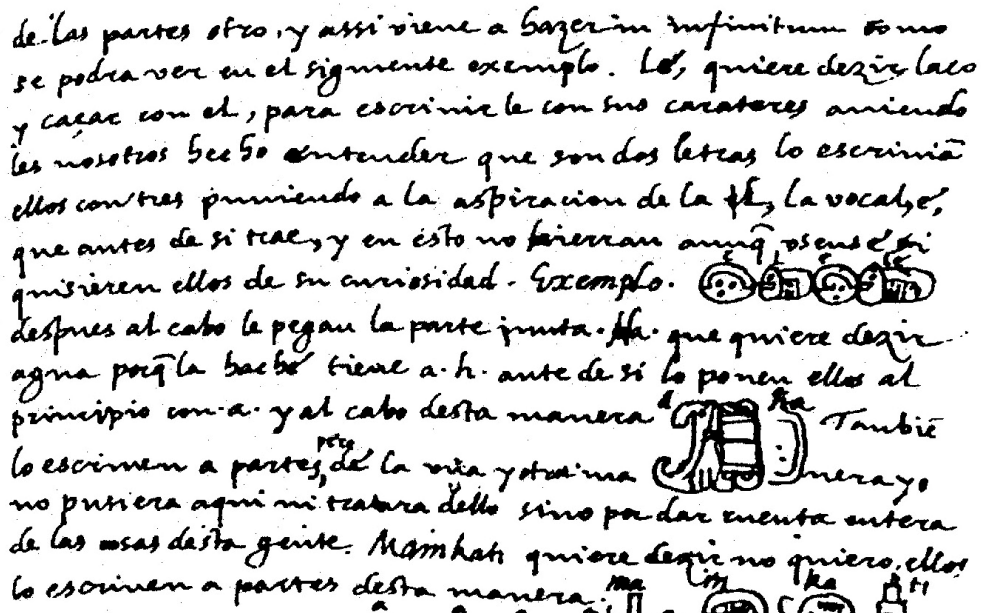 de las partes otro, y assi viene a hazer in infinitum como
se podra ver en el siguiente exemplo. Lé, quiere dezir laço
y caçar con el, para escrivirle con sus carateres aviendo
les nosotros hecho entender que son dos letras lo escrivia᷉
ellos con tres puniendo a la aspiracion de la l, la vocal, é,
que antes de si trae, y en esto no hierran aunq̃ usense si
quisieren ellos de su curiosidad. Exemplo. e l e lé
despues al cabo le pegan la parte junta. Ha. que quiere dezir
agua porq̃ la haché tiene a. h. ante de si lo ponen ellos al
principio con. a. y al cabo desta manera a ha Tanbiē
lo escriven a partes, pero de la una y otra ma nera yo
no pusiera aqui ni tratara dello sino por dar cuenta entera
de las cosas desta gente. Mainkati quiere dezir no quiero, ellos
lo escriven a partes desta manera. ma i n ka ti